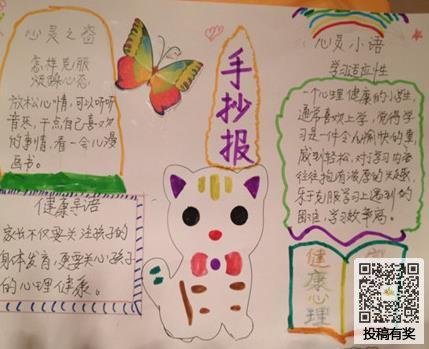 心灵之窗
怎样克服
烦躁心态
放松心情,可以听听
音乐,干点自己喜欢
的事情,看一会儿漫
画书。
健康导语
家长不仅要关注孩子的
身体发育,更要关心孩子
的心理健康。
手抄报
心灵小语
学习适应性
一个心理健康的小学生,
通常喜欢上学,觉得学
习是一件令人愉快的事,
感到轻松,对学习内容
往往抱有浓厚的兴趣,
乐于克服学习上遇到的
困难,学习效率高。
健康心理
投稿有奖